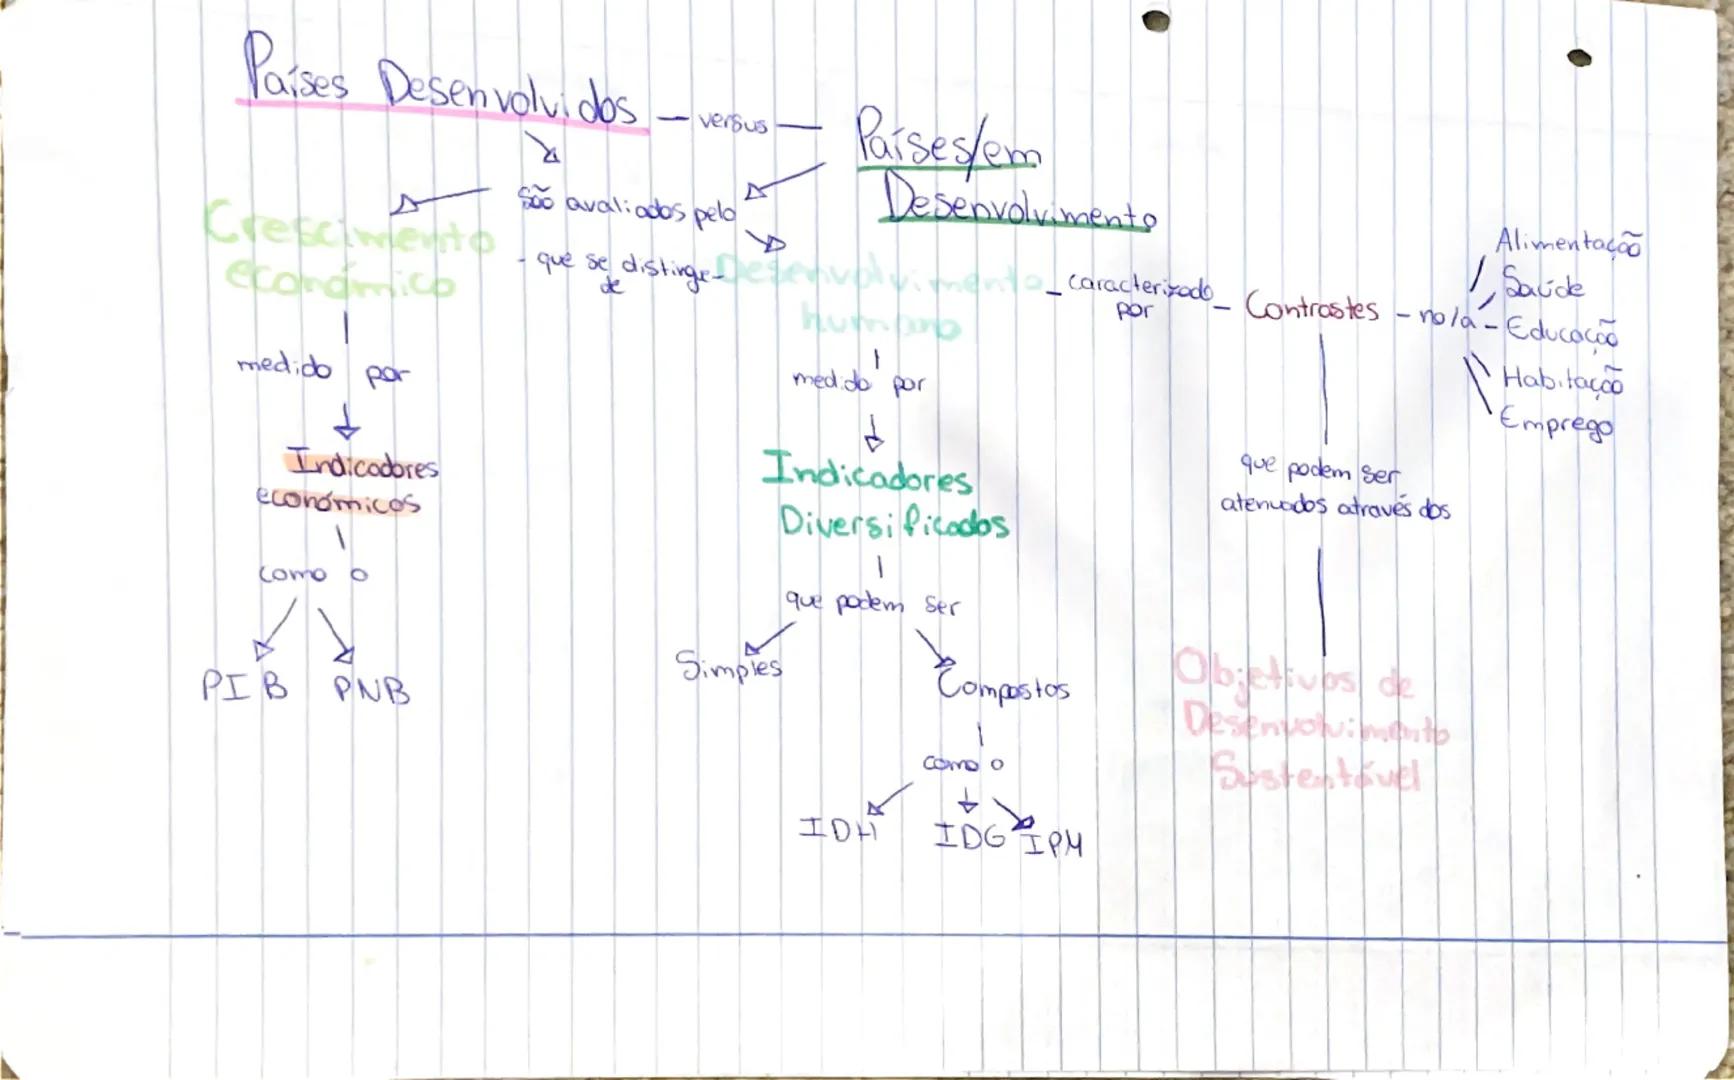 Países Desenvolvidos — versus —
Países/em
Desenvolvimento
são avaliados pelo
Crescimento
económico
- que se distinge -
de
Desenvolvimento
humano
- caracterizado -
por
Contrastes - no/a -
Alimentação
Saúde
Educação
Habitação
Emprego
medido por
Indicadores
económicos
como o
PIB PNB
medido por
Indicadores
Diversificados
que podem ser
Simples
Compostos
como o
IDH IDG IPM
que podem ser
atenuados através dos
Objetivos de
Desenvolvimento
Sustentável